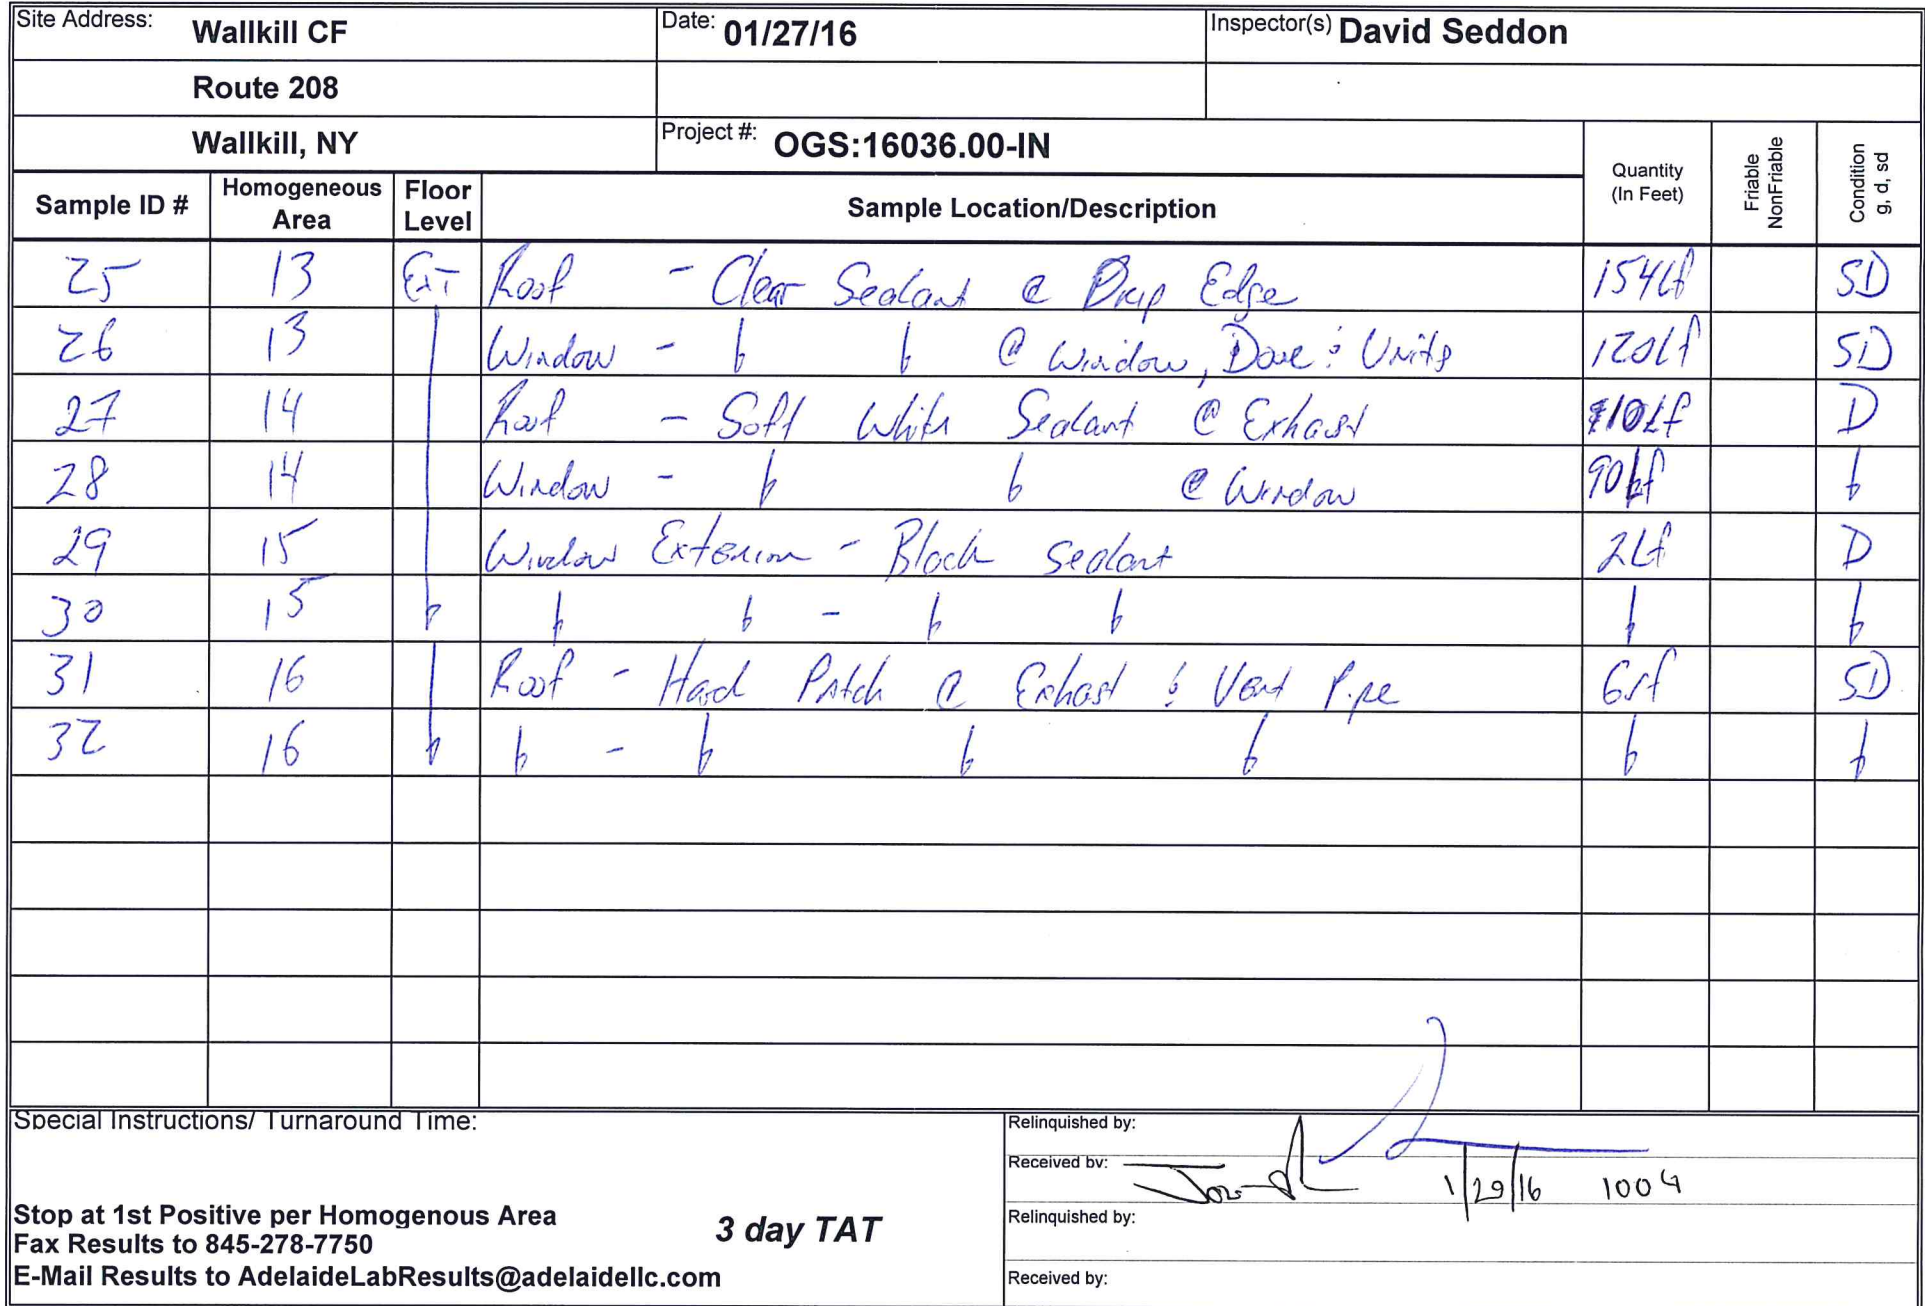 Site Address: Wallkill CF Date: 01/27/16 Inspector(s) David Seddon
Route 208
Wallkill, NY Project #: OGS:16036.00-IN
Sample ID # Homogeneous Area Floor Level Sample Location/Description Quantity (In Feet) Friable NonFriable Condition g, d, sd
25 13 Ext Roof - Clear Sealant @ Drip Edge 154Lf SD
26 13 Window - @ Window, Door & Units 120Lf SD
27 14 Roof - Soft White Sealant @ Exhaust 110Lf D
28 14 Window - @ Window 90Lf
29 15 Window Exterior - Black Sealant 2Lf D
30 15 -
31 16 Roof - Hard Patch @ Exhast & Vent Pipe 6sf SD
32 16 -
Special Instructions/ Turnaround Time:
Relinquished by:
Received by: 1/29/16 1004
Stop at 1st Positive per Homogenous Area
Fax Results to 845-278-7750
E-Mail Results to AdelaideLabResults@adelaidellc.com
3 day TAT
Relinquished by:
Received by: